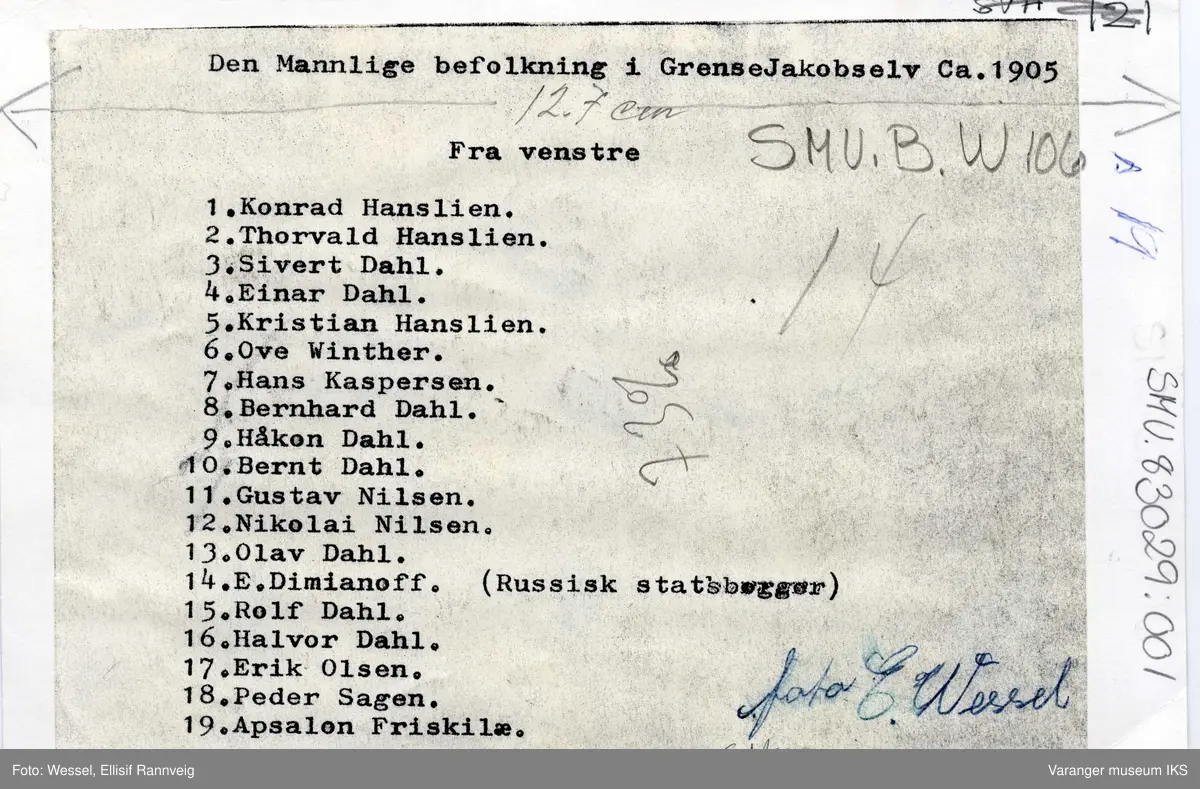 121
Den Mannlige befolkning i GrenseJakobselv Ca.1905
12.7 cm
Fra venstre
SMV.B.W 106
A 19
1.Konrad Hanslien.
2.Thorvald Hanslien.
14
3.Sivert Dahl.
4.Einar Dahl.
5.Kristian Hanslien.
6.Ove Winther.
7.Hans Kaspersen.
8.Bernhard Dahl.
9.Håkon Dahl.
10.Bernt Dahl.
11.Gustav Nilsen.
12.Nikolai Nilsen.
13.Olav Dahl.
14.E.Dimianoff. (Russisk statsborger)
15.Rolf Dahl.
16.Halvor Dahl.
17.Erik Olsen.
18.Peder Sagen.
19.Apsalon Friskilæ.
foto E. Wessel
SMV.83029:001
Foto: Wessel, Ellisif Rannveig
Varanger museum IKS